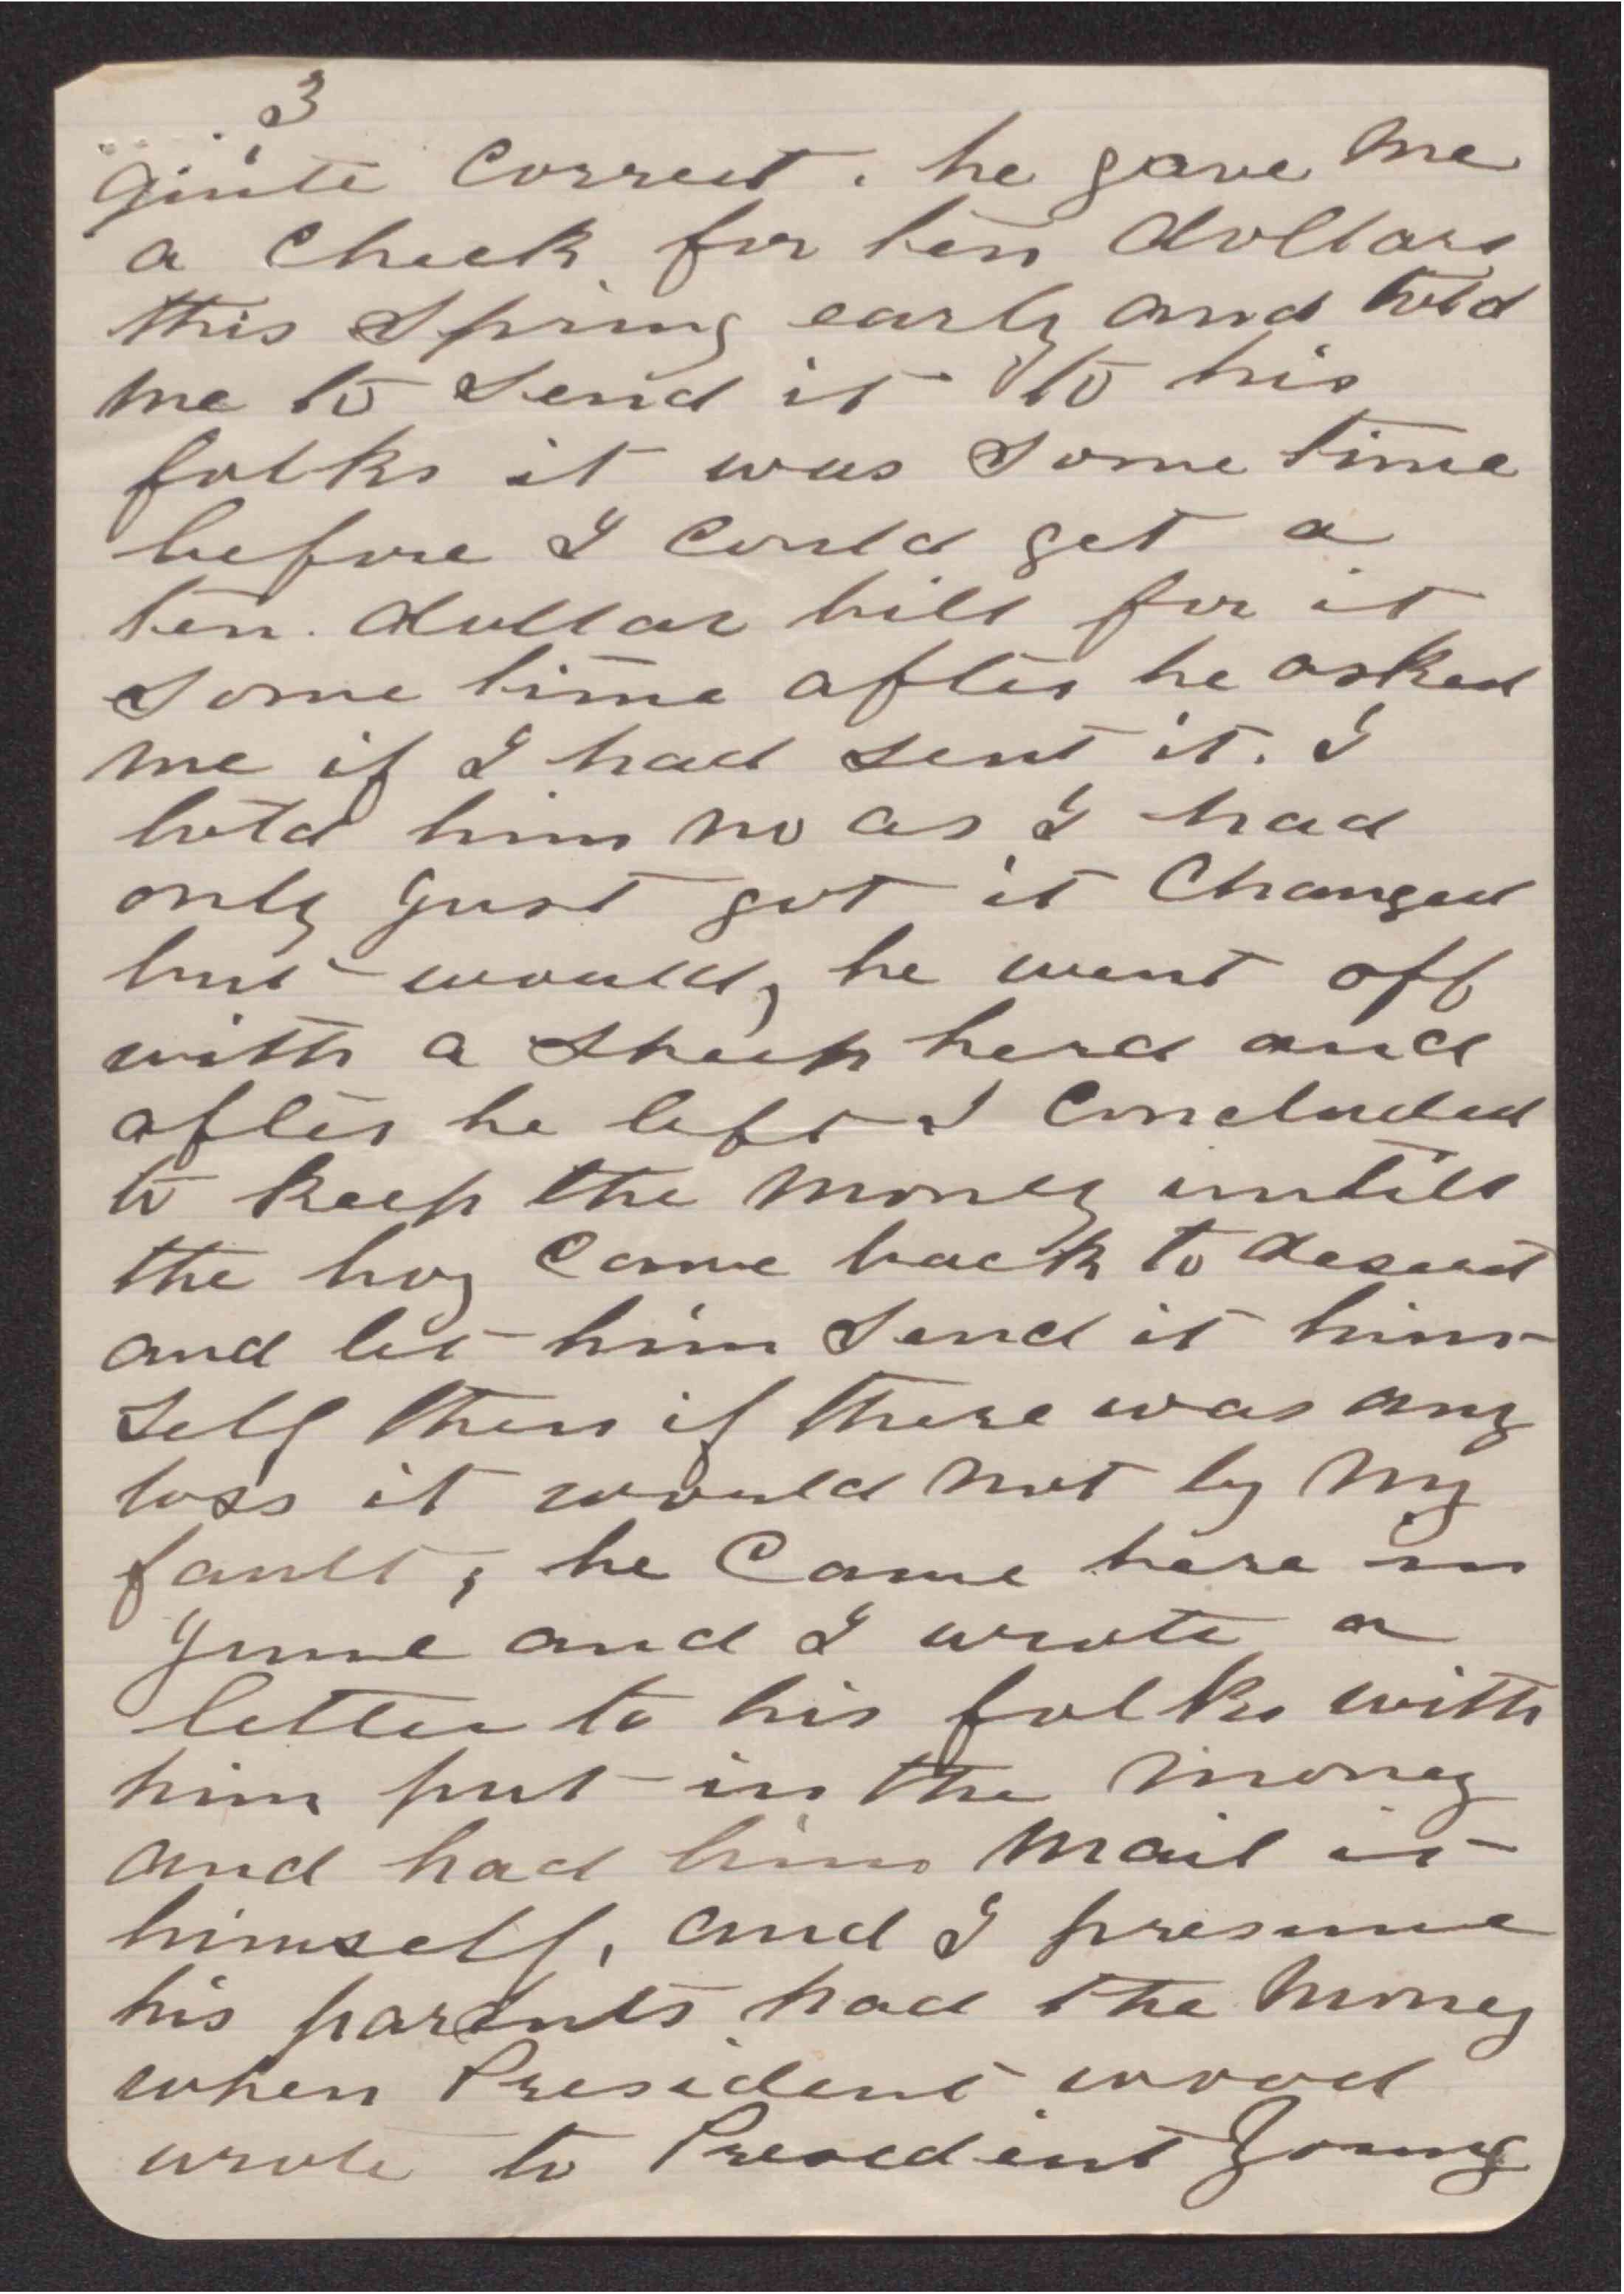 3
quite Correct. he gave me
a Check for ten dollars
this Spring early and told
me to Send it to his
folks it was Some time
before I Could get a
ten. dollar bill for it
Some time after he asked
me if I had sent it. I
told him no as I had
only Just got it Changed
but would, he went off
with a Sheep herd and
after he left I Concluded
to keep the money untill
the boy Came back to deseret
and let him Send it him-
Self then if there was any
loss it would not by my
fault; he Came here in
June and I wrote a
letter to his folks with
him put in the money
and had him mail it
himself, and I presume
his parents had the money
when President wood
wrote to President Young